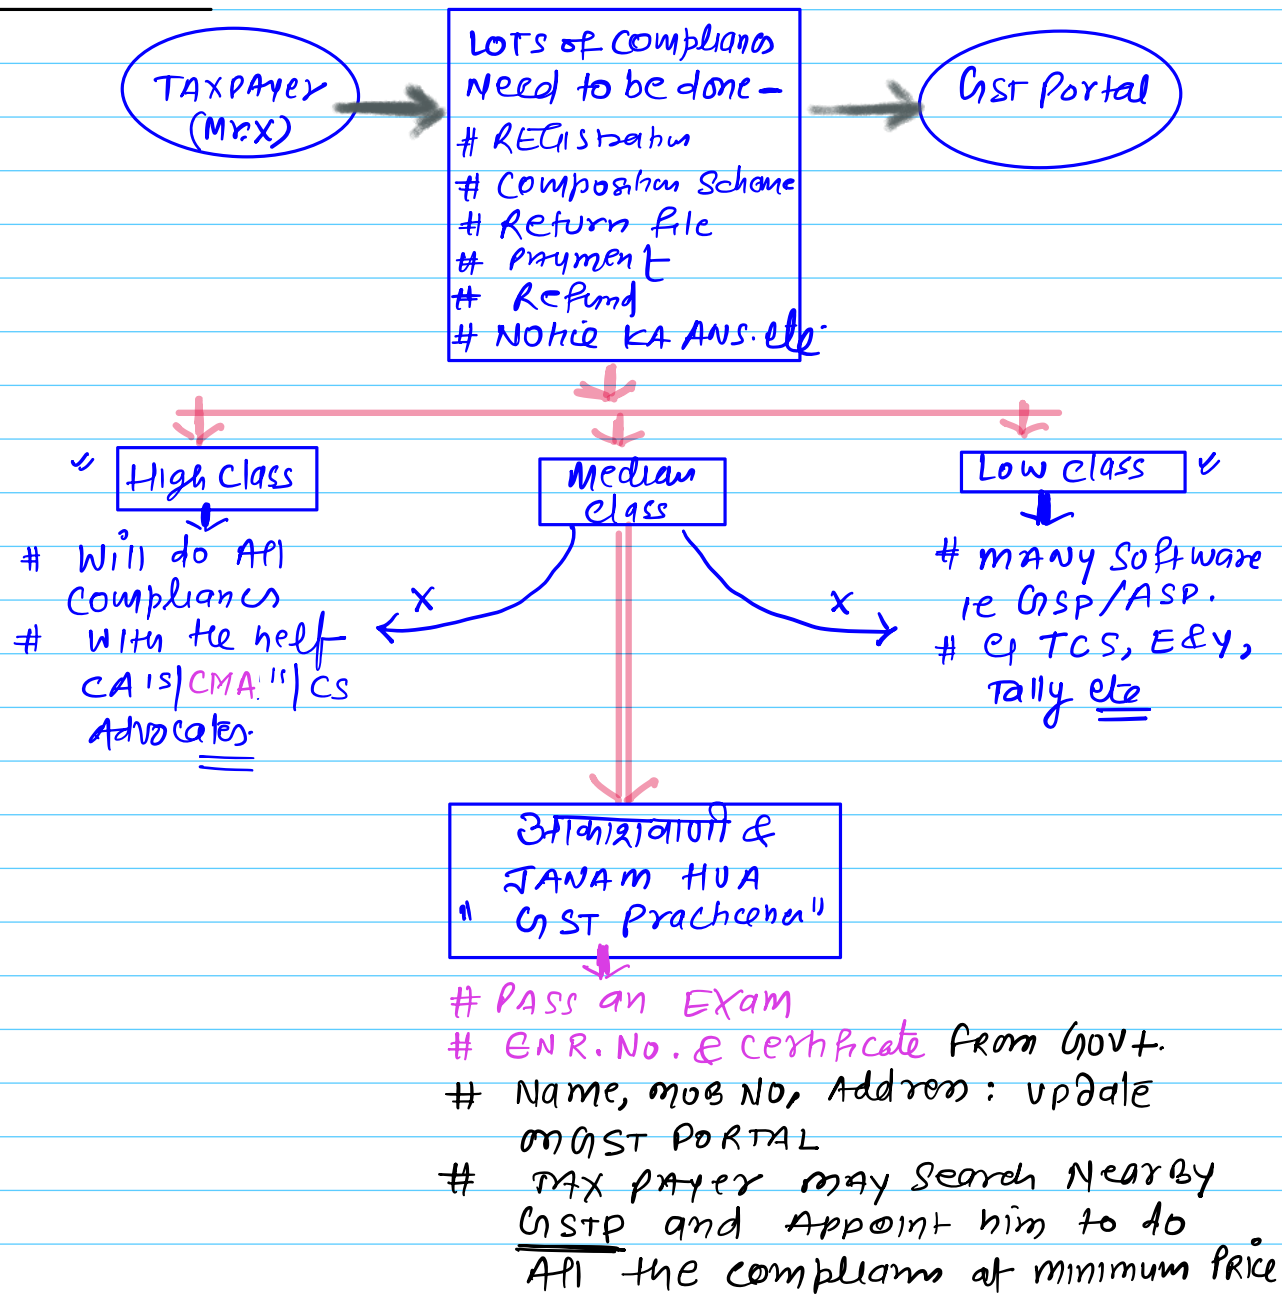 TAXPAYER
(Mr.X)
LOTS of Compliances
Need to be done -
# REGIStration
# Composition Scheme
# Return file
# PAyment
# Refund
# Notice KA ANS. etc.
GST Portal
High Class
# Will do All
Compliances
# With the help
CA's/CMA's/CS
Advocates.
Median
Class
X
X
Low Class
# MANY Software
ie GSP/ASP.
# eg TCS, E&Y,
Tally etc
आकाशवाणी &
JANAM HUA
"GST Practicener"
# PASS an EXam
# ENR. No. & Certificate FRom Govt.
# Name, MOB NO, Address : update
on GST PORTAL
# TAX PAYer MAY Search NearBy
GSTP and Appoint him to do
All the compliances at minimum PRice